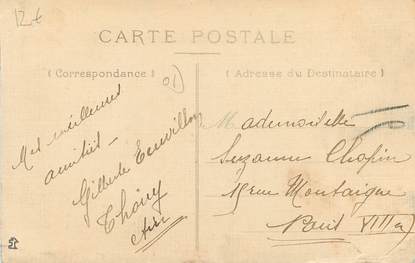 12€
CARTE POSTALE
( Correspondance )
( Adresse du Destinataire )
01
Mes meilleures
amitiés -
Gilberte
Thoiry
Ain
Mademoiselle
Suzanne Chopin
rue Montaigne
Paris VIII